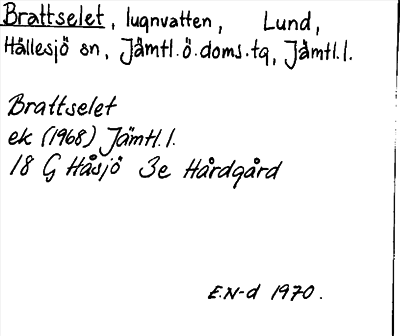 Brattselet, lugnvatten, Lund,
Hållesjö sn, Jämtl.ö.doms.tg, Jämtl.l.
Brattselet
ek (1968) Jämtl.l.
18 G Håsjö 3e Hårdgård
E.N-d 1970.